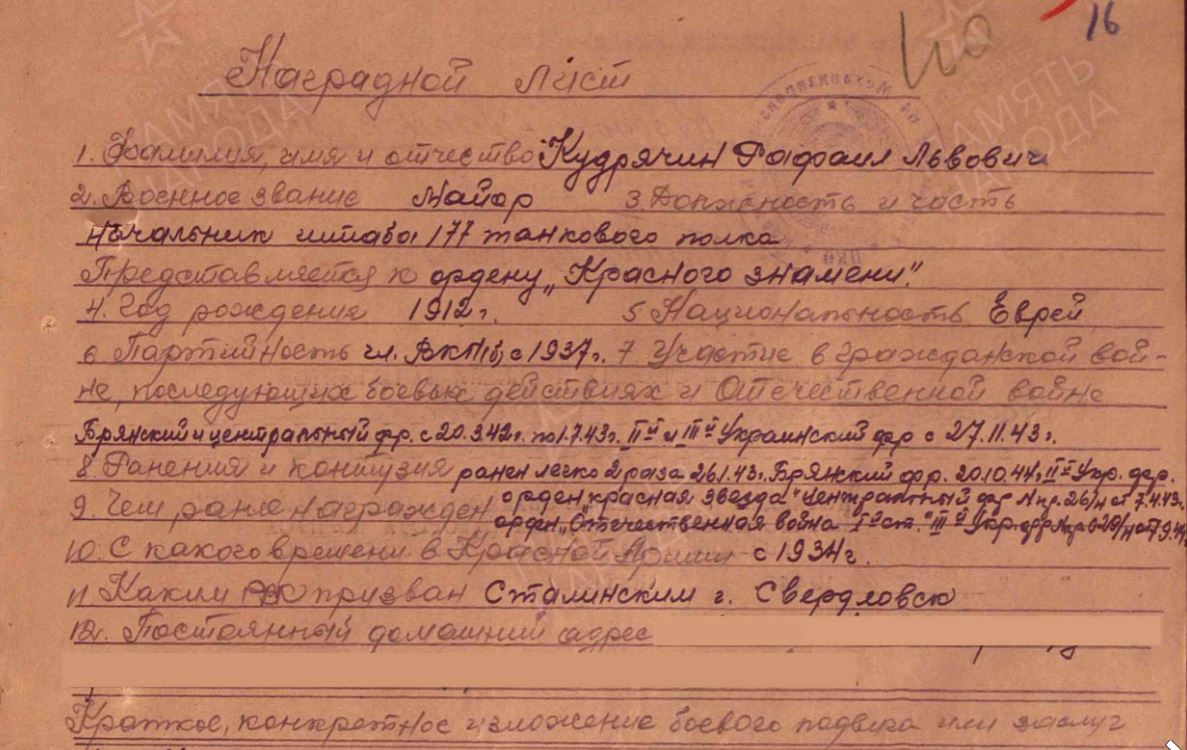 16
Наградной лист
1. Фамилия, имя и отчество Кудрячин Рафаил Львович
2. Военное звание Майор 3. Должность и часть
Начальник штаба 177 танкового полка
Представляется к ордену „Красного знамени".
4. Год рождения 1912 г. 5 Национальность Еврей
6 Партийность чл. ВКП(б) с 1937 г. 7 Участие в гражданской вой-
не, последующих боевых действиях и Отечественной войне
Брянский и центральный фр. с 20.3.42 г. по 1.7.43 г. II й и III й Украинский фр с 27.11.43 г.
8 Ранения и контузия ранен легко 2 раза 26.1.43 г. Брянский фр. 20.10.44 г. II й Укр. фр.
9. Чем ранее награжден орден „красная звезда" Центральный фр N пр. 26/н от 7.4.43 г.
орден „Отечественная война I й ст." III й Укр. фр
10. С какого времени в Красной Армии с 1934 г.
11. Каким РВК призван Сталинским г. Свердловск
12. Постоянный домашний адрес
Краткое, конкретное изложение боевого подвига или заслуг
ПАМЯТЬ НАРОДА
ПАМЯТЬ НАРОДА